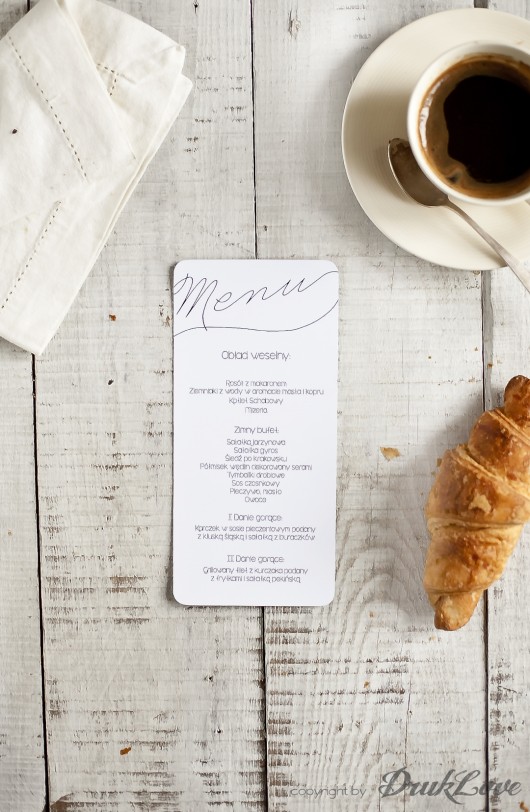 Menu
Obiad weselny:
Rosół z makaronem
Ziemniaki z wody w aromacie masła i kopru
Kotlet Schabowy
Mizeria
Zimny bufet:
Sałatka jarzynowa
Sałatka gyros
Śledź po krakowsku
Półmisek wędlin dekorowany serami
Tymbaliki drobiowe
Sos czosnkowy
Pieczywo, masło
Owoce
I Danie gorące:
Karczek w sosie pieczeniowym podany
z kluską śląską i sałatką z buraczków
II Danie gorące:
Grillowany filet z kurczaka podany
z frytkami i sałatką pekińską
copyright by DrukLove